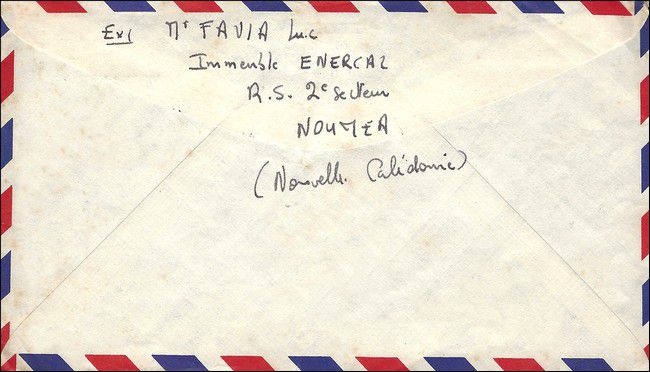 Exp Mr FAVIA Luc
Immeuble ENERCAL
R.S. 2e Secteur
NOUMEA
(Nouvelle Calédonie)